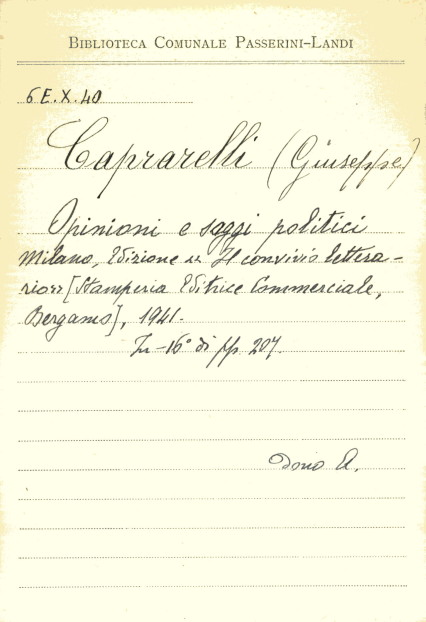 BIBLIOTECA COMUNALE PASSERINI-LANDI
6 E.X.40
Caprarelli (Giuseppe)
Opinioni e saggi politici
Milano, Edizione « Il convivio lettera-
rio » [Stamperia Editrice Commerciale,
Bergamo], 1941.
In-16° di pp. 207.
Dono A.